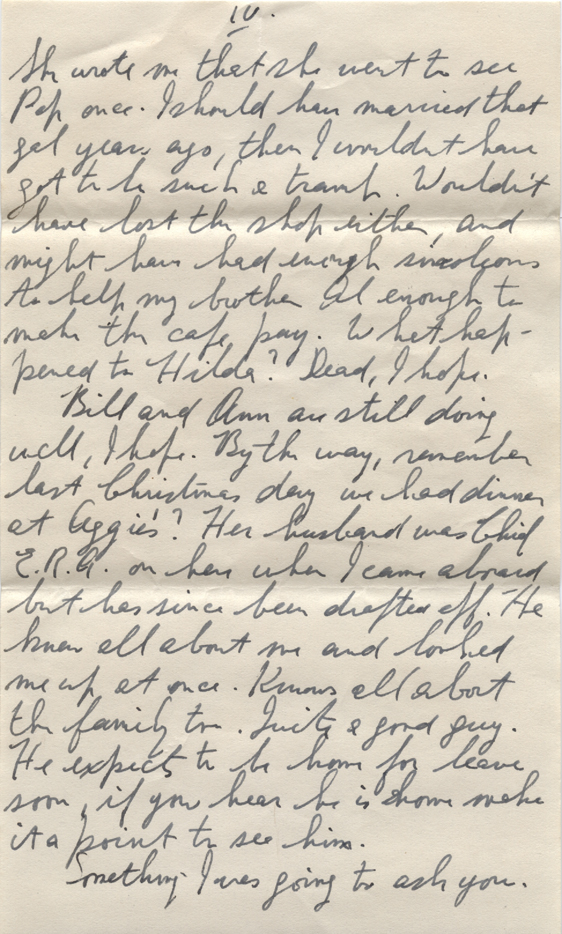 IV.
She wrote me that she went to see
Pop once. I should have married that
gal years ago, then I wouldn't have
got to be such a tramp. Wouldn't
have lost the shop either, and
might have had enough simoleons
to help my brother Al enough to
make the cafe pay. What hap-
pened to Hilda? Dead, I hope.
Bill and Ann are still doing
well, I hope. By the way, remember
last Christmas day we had dinner
at Aggie's? Her husband was Chief
E.R.A. on here when I came aboard
but has since been drafted off. He
knew all about me and looked
me up at once. Knows all about
the family too. Quite a good guy.
He expects to be home for leave
soon, if you hear he is home make
it a point to see him.
Something I was going to ask you.